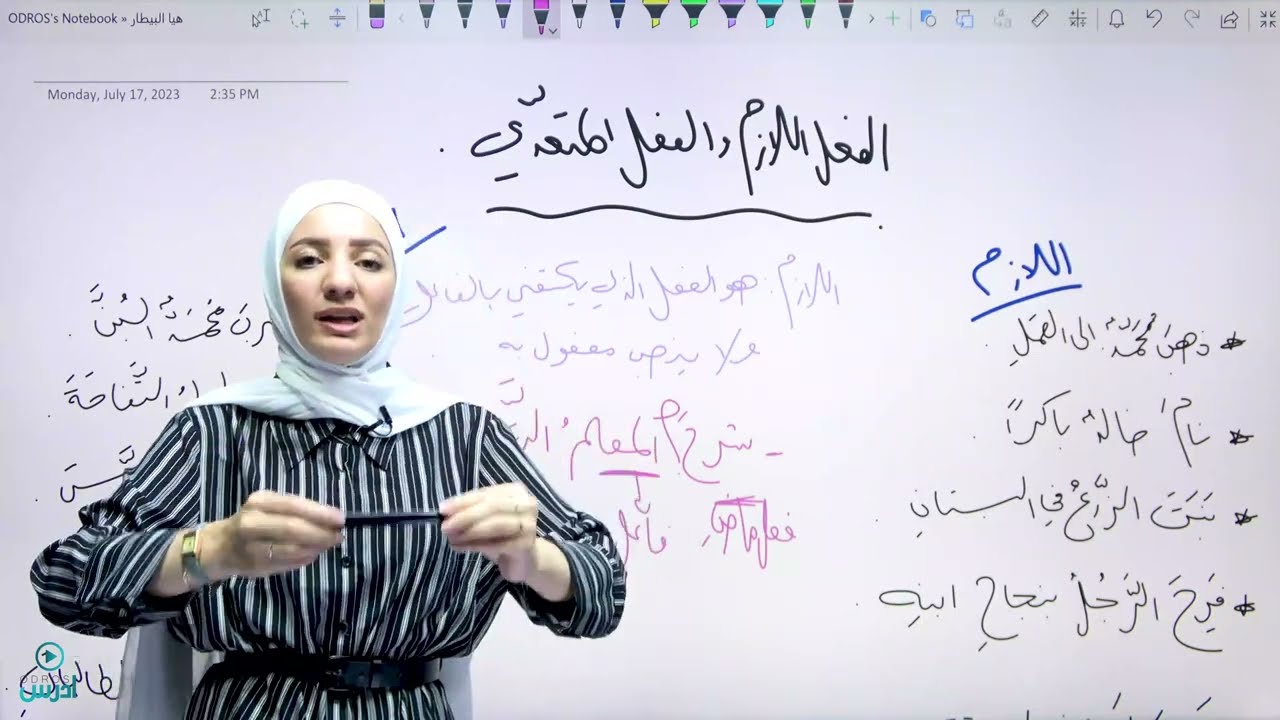 ODROS's Notebook » هيا البيطار
Monday, July 17, 2023 2:35 PM
الفعل اللازم والفعل المتعدّي .
اللازم
* ذهبَ محمدٌ الى العملِ .
* نامَ خالدٌ باكرًا .
* نبَتَ الزَّرعُ في البستانِ .
* فَرِحَ الرَّجُلُ بنجاحِ ابنِهِ .
اللازم : هو الفعل الذي يكتفي بالفاعل
ولا ينصب مفعول به
- شرحَ المعلمُ
فعل ماضٍ
محمدٌ اللبنَ .
التُّفاحَةَ .
ODROS
ادرس